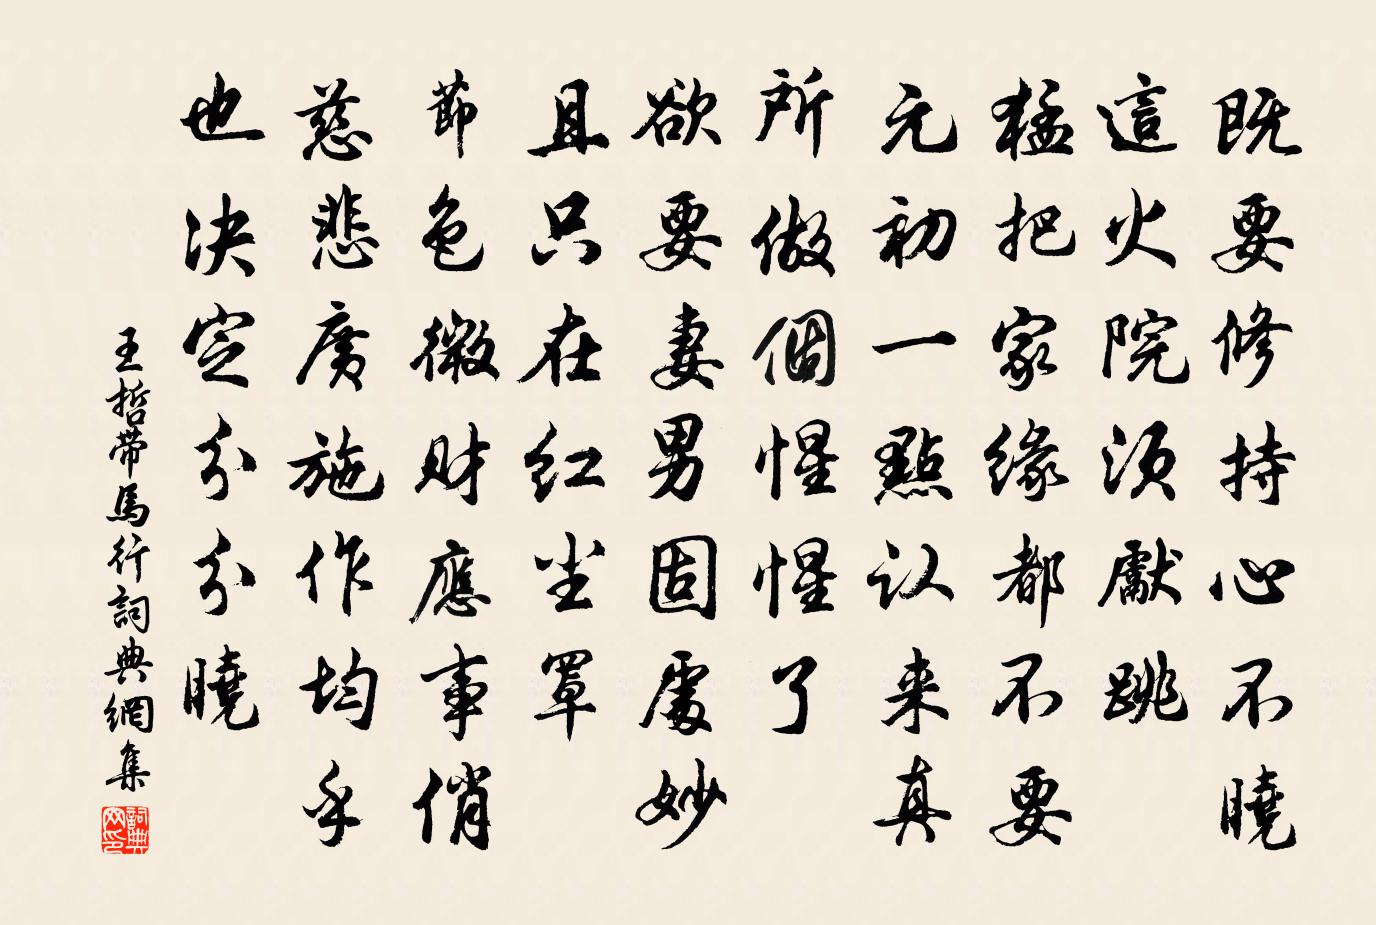 既要修持心不曉
這火院須獻跳
猛把家緣都不要
元初一點认来真
所做個惺惺了
欲要妻男固處妙
且只在红尘罩
節色微财應事俏
慈悲廣施作均平
也决定分分曉
王哲带馬行詞典網集
詞典网印